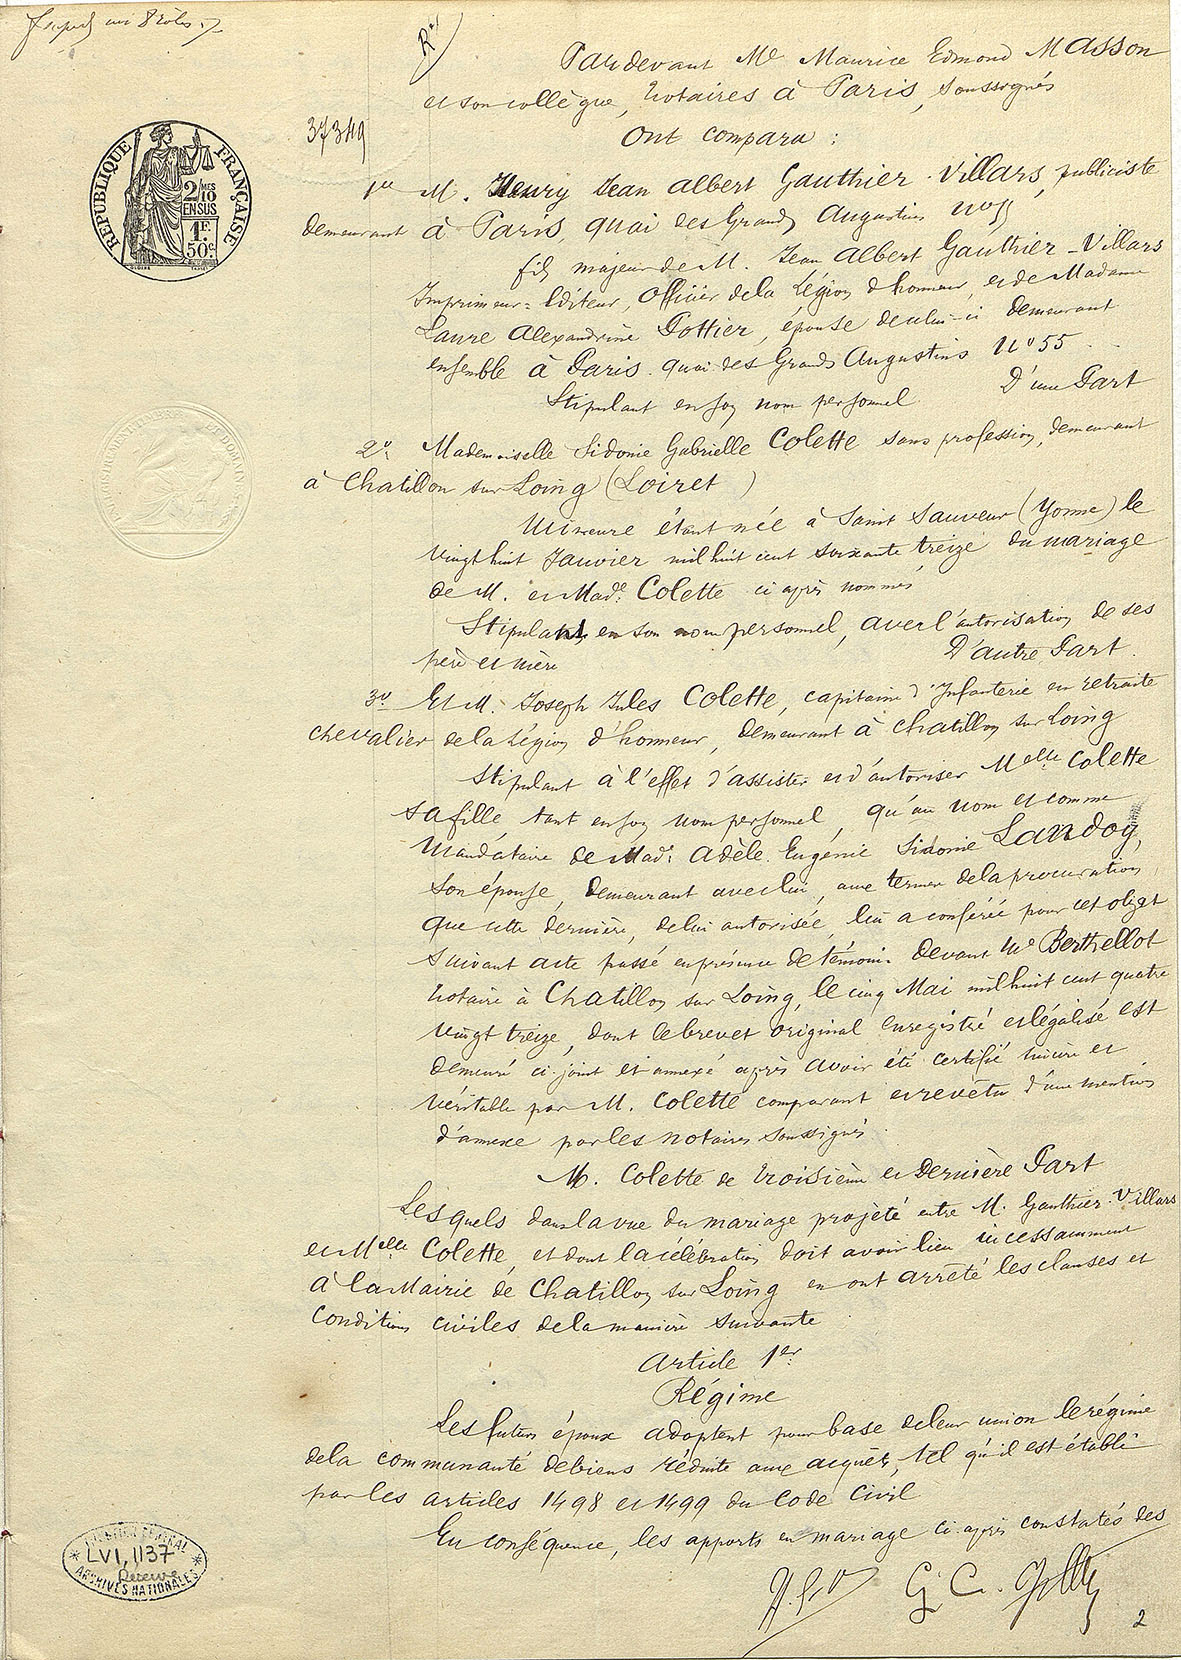 Pardevant Me Maurice Edmond Masson
et son collègue, Notaires à Paris, soussignés
Ont comparu :
37349
RÉPUBLIQUE FRANÇAISE
2/10 MES EN SUS
1F. 50c.
1ent M. Henry Jean Albert Gauthier-Villars, publiciste
demeurant à Paris, quai des Grands Augustins no 55
fils majeur de M. Jean Albert Gauthier-Villars
Imprimeur-Editeur, officier de la Légion d'honneur, et de Madame
Laure Alexandrine Pottier, épouse de celui-ci demeurant
ensemble à Paris quai des Grands Augustins no 55
Stipulant en son nom personnel D'une Part
2o Mademoiselle Sidonie Gabrielle Colette sans profession, demeurant
à Chatillon sur Loing (Loiret)
Mineure étant née à Saint Sauveur (Yonne) le
vingt huit Janvier mil huit cent soixante treize du mariage
de M. et Made Colette ci après nommés
Stipulant en son nom personnel, avec l'autorisation de ses
père et mère D'autre Part.
3o Et M. Joseph Jules Colette, capitaine d'Infanterie en retraite
chevalier de la Légion d'honneur, demeurant à Chatillon sur Loing
Stipulant à l'effet d'assister et d'autoriser Melle Colette
sa fille tant en son nom personnel, qu'au nom et comme
Mandataire de Made Adèle Eugénie Sidonie Landoy,
son épouse, demeurant avec lui, aux termes de la procuration
que cette dernière, de lui autorisée, lui a conférée pour cet objet
suivant acte passé en présence de témoins devant Me Berthellot
Notaire à Chatillon sur Loing, le cinq Mai mil huit cent quatre
vingt treize, dont le brevet original enregistré et légalisé est
demeuré ci-joint et annexé après avoir été certifié sincère et
véritable par M. Colette comparant et revêtu d'une mention
d'annexe par les notaires soussignés.
M. Colette de troisième et Dernière Part
Lesquels dans la vue du mariage projeté entre M. Gauthier-Villars
et Melle Colette, et dont la célébration doit avoir lieu incessamment
à la Mairie de Chatillon sur Loing en ont arrêté les clauses et
conditions civiles de la manière suivante
Article 1er
Régime
Les futurs époux adoptent pour base de leur union le régime
de la communauté de biens réduite aux acquêts, tel qu'il est établi
par les articles 1498 et 1499 du Code Civil
En conséquence, les apports en mariage ci-après constatés des
LVI, 1137
Réserve
ARCHIVES NATIONALES
G. C.
2